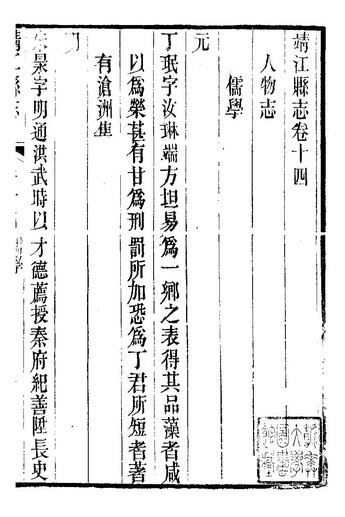 靖江縣志卷十四
人物志
儒學
元
丁珉字汝琳端方坦易爲一鄉之表得其品藻者咸
以爲榮甚有甘爲刑罰所加恐爲丁君所短者著
有滄洲集
明
朱㫤字明通洪武時以才德薦授秦府紀善陞長史
靖江縣志
儒學